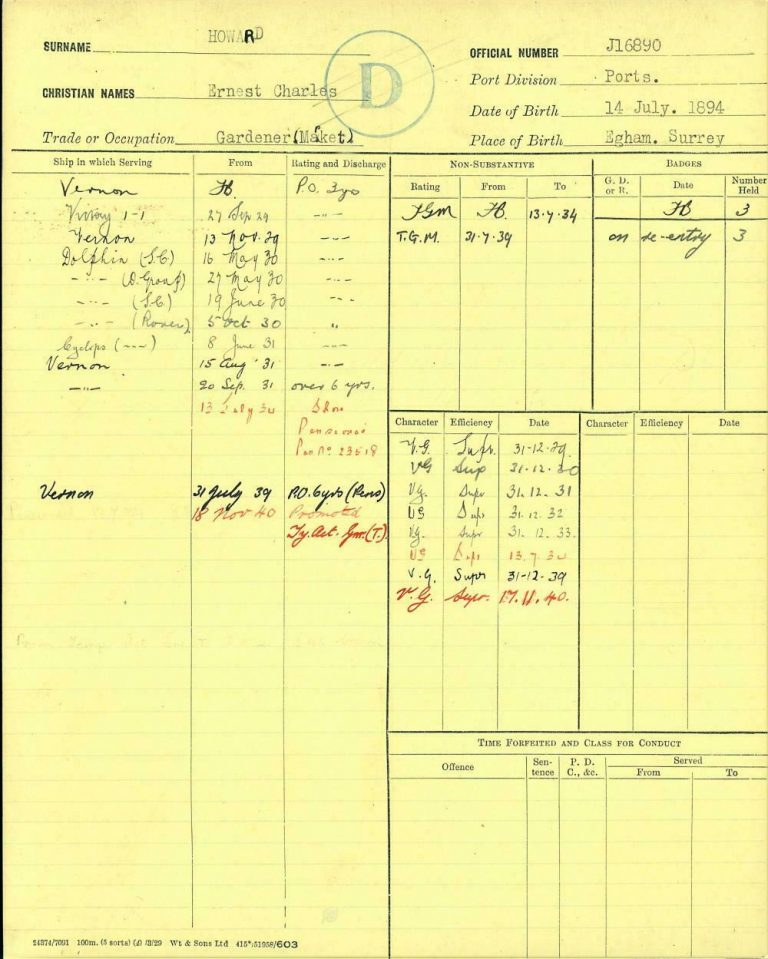 SURNAME HOWARD
OFFICIAL NUMBER J16890
Port Division Ports.
CHRISTIAN NAMES Ernest Charles
D
Date of Birth 14 July. 1894
Trade or Occupation Gardener (Market)
Place of Birth Egham. Surrey
Ship in which Serving From Rating and Discharge
Vernon P.O. 3yo
Victory 1-1 27 Sep 29 -"-
Vernon 13 Nov. 29 -"-
Dolphin (S.C) 16 May 30 -"-
-"- 27 May 30 -"-
-"- (S.C) 19 June 30 -"-
-"- (Rover) 5 Oct 30 "
Cyclops (-"-) 8 June 31 -"-
Vernon 15 Aug 31 -"-
-"- 20 Sep. 31 over 6 yrs.
13 July 34 Shore
Pensioned
Pen No 23518
Vernon 31 July 39 P.O. 6yrs (Pens)
18 Nov 40 Promoted
Ty. Act. Gnr. (T.)
NON-SUBSTANTIVE
Rating From To
TGM 13.7.34
T.G.M. 31.7.39
BADGES
G. D. or R. Date Number Held
3
on re-entry 3
Character Efficiency Date Character Efficiency Date
V.G. Supr. 31-12-29.
VG Sup 31-12-30
VG. Supr 31.12.31
VG Supr 31.12.32
VG. Supr 31.12.33.
VG Supr 13.7.34
V.G. Supr 31-12-39
V.G. Supr. 17.11.40.
TIME FORFEITED AND CLASS FOR CONDUCT
Offence Sentence P. D. C., &c. Served
From To
24374/7091 100m. (5 sorts) 8/29 Wt & Sons Ltd 51958/603